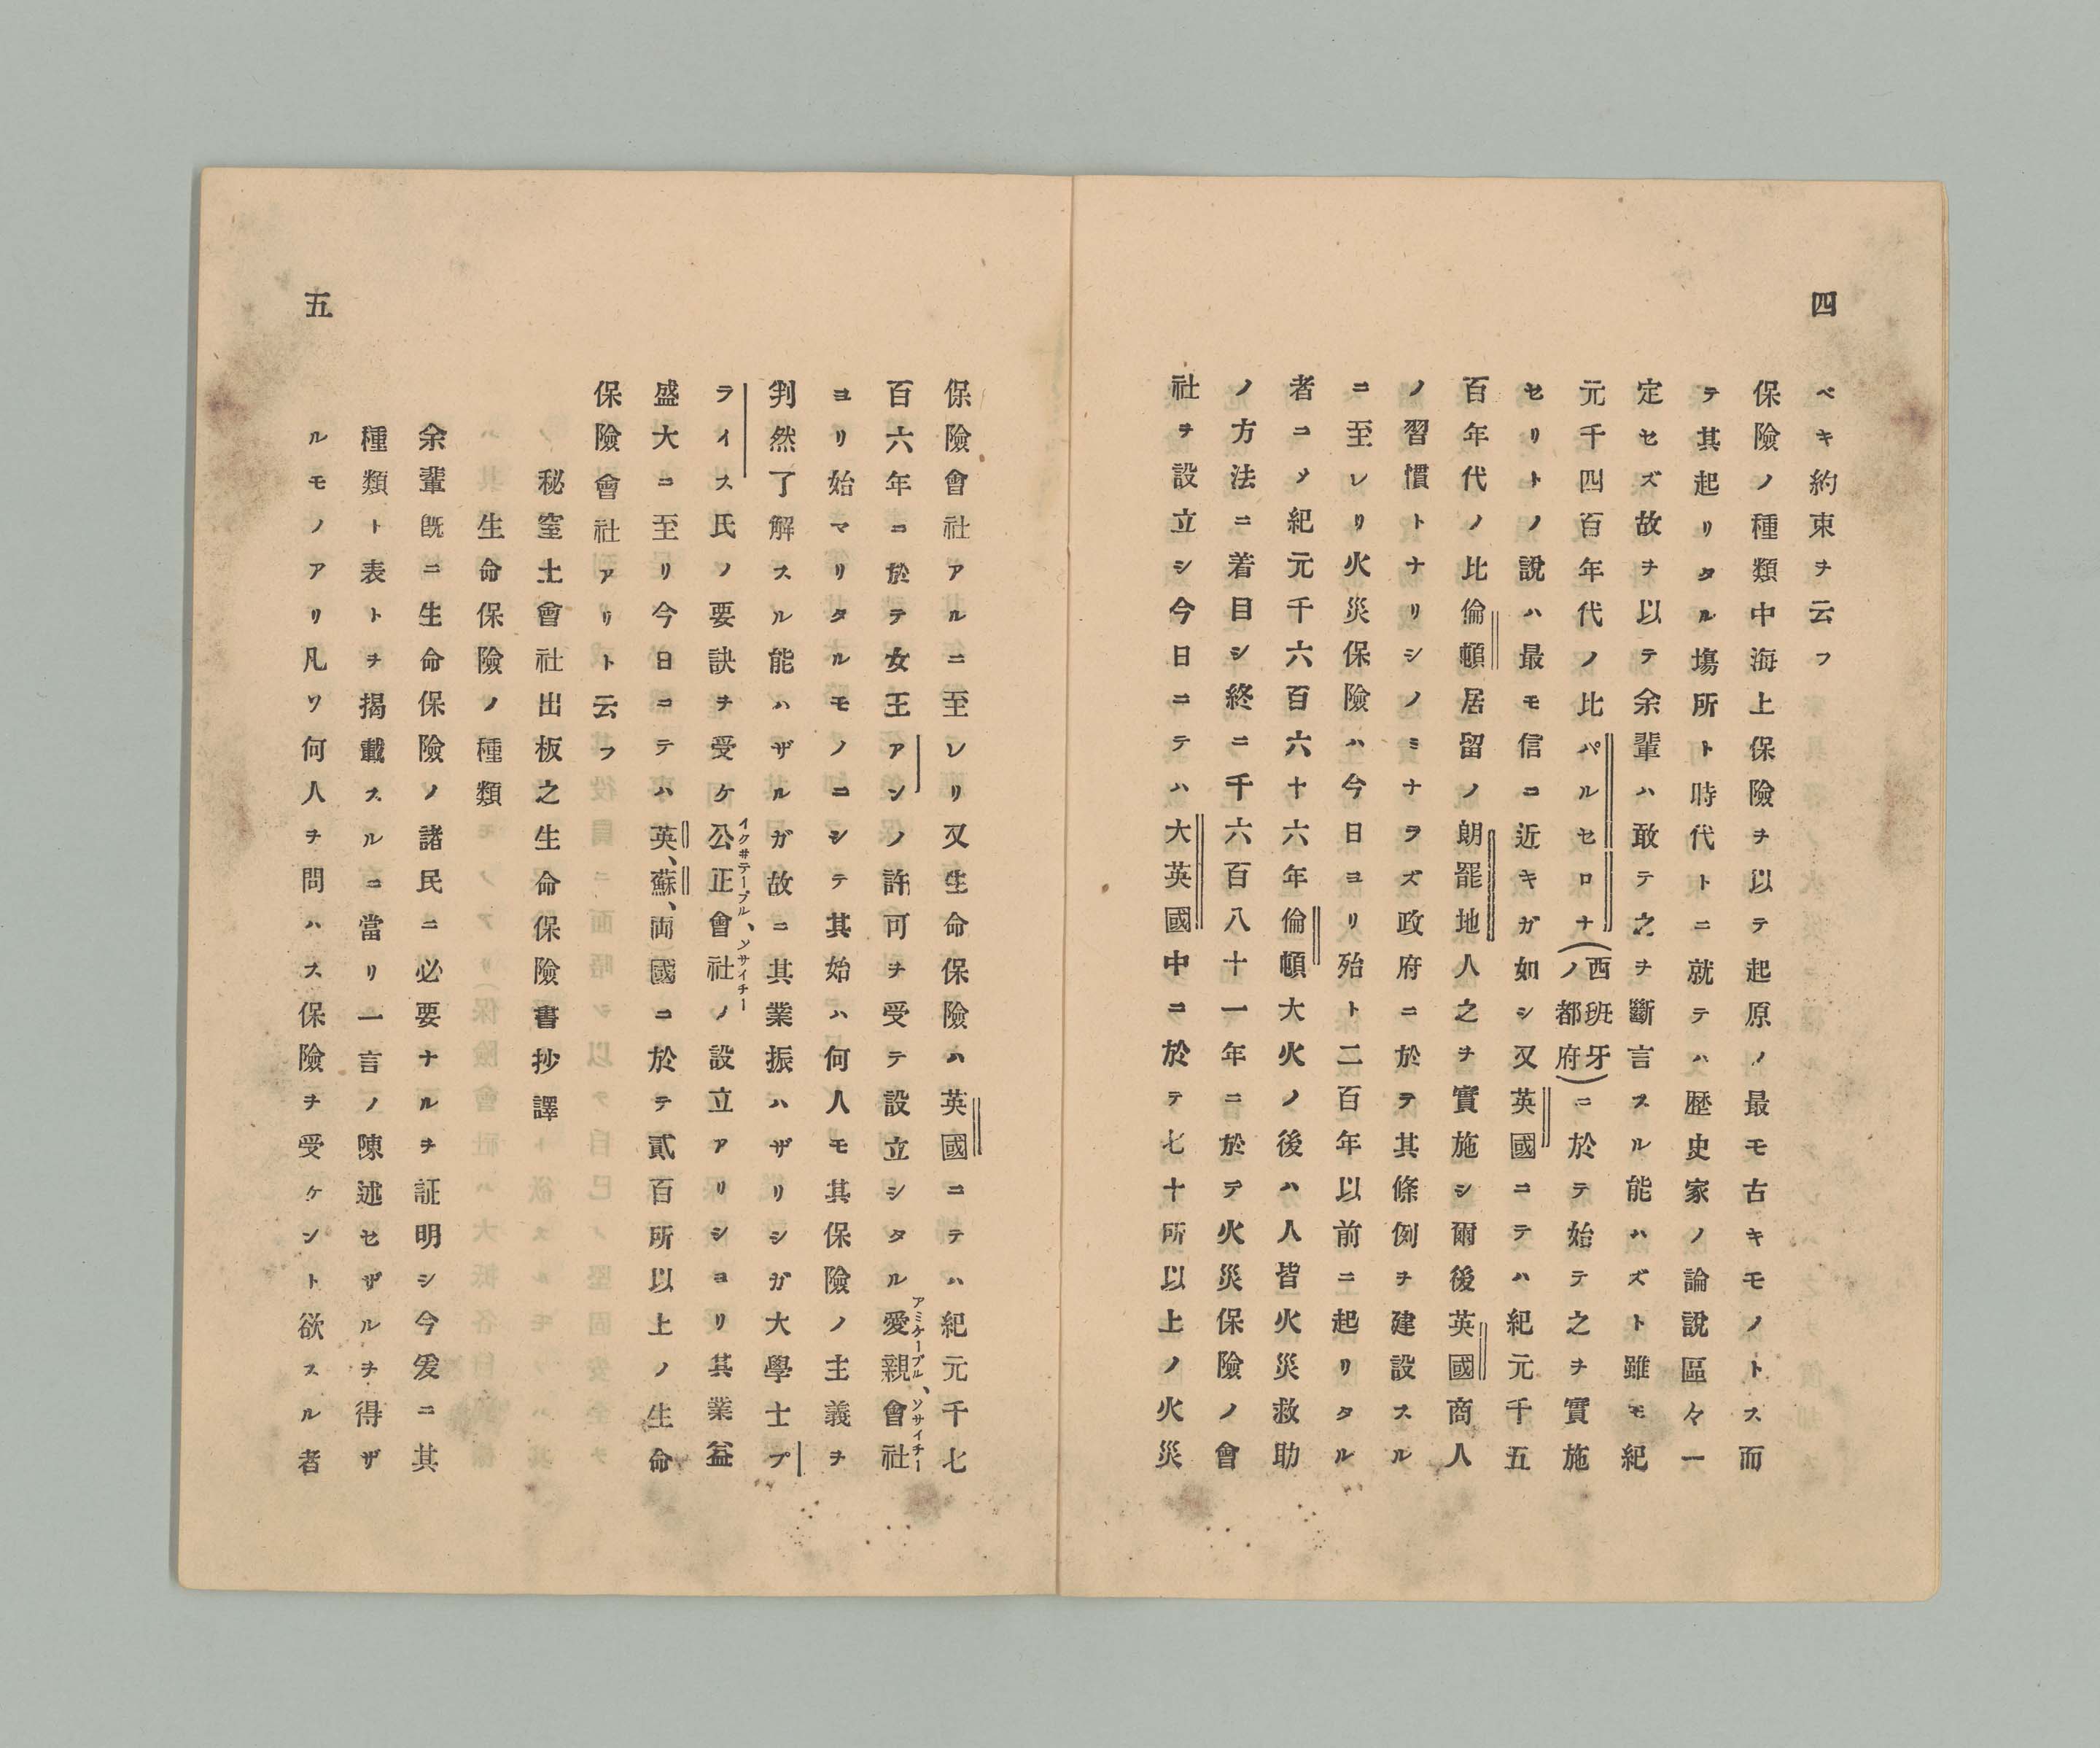 四
ベキ約束ヲ云フ
保險ノ種類中海上保險ヲ以テ起原ノ最モ古キモノトス而
テ其起リタル塲所ト時代トニ就テハ歴史家ノ論說區々一
定セズ故ヲ以テ余輩ハ敢テ之ヲ斷言スル能ハズト雖モ紀
元千四百年代ノ比バルセロナ(西班牙ノ都府)ニ於テ始テ之ヲ實施
セリトノ說ハ最モ信ニ近キガ如シ又英國ニテハ紀元千五
百年代ノ比倫頓居留ノ朗罷地人之ヲ實施シ爾後英國商人
ノ習慣トナリシノミナラズ政府ニ於テ其條例ヲ建設スル
ニ至レリ火災保險ハ今日ヨリ殆ト二百年以前ニ起リタル
者ニメ紀元千六百六十六年倫頓大火ノ後ハ人皆火災救助
ノ方法ニ着目シ終ニ千六百八十一年ニ於テ火災保險ノ會
社ヲ設立シ今日ニテハ大英國中ニ於テ七十所以上ノ火災
保險會社アルニ至レリ又生命保險ハ英國ニテハ紀元千七
百六年ニ於テ女王アンノ許可ヲ受テ設立シタル愛親會社
アミケーブル、ソサイチー
ヨリ始マリタルモノニシテ其始ハ何人モ其保險ノ主義ヲ
判然了解スル能ハザルガ故ニ其業振ハザリシガ大學士プ
ライス氏ノ要訣ヲ受ケ公正會社ノ設立アリシヨリ其業益
イクヰテーブル、ソサイチー
盛大ニ至リ今日ニテハ英、蘇、両國ニ於テ貳百所以上ノ生命
保險會社アリト云フ
秘窒土會社出板之生命保險書抄譯
生命保險ノ種類
余輩旣ニ生命保險ノ諸民ニ必要ナルヲ証明シ今爰ニ其
種類ト表トヲ揭載スルニ當リ一言ノ陳述セザルヲ得ザ
ルモノアリ凡ソ何人ヲ問ハス保險ヲ受ケント欲スル者
五